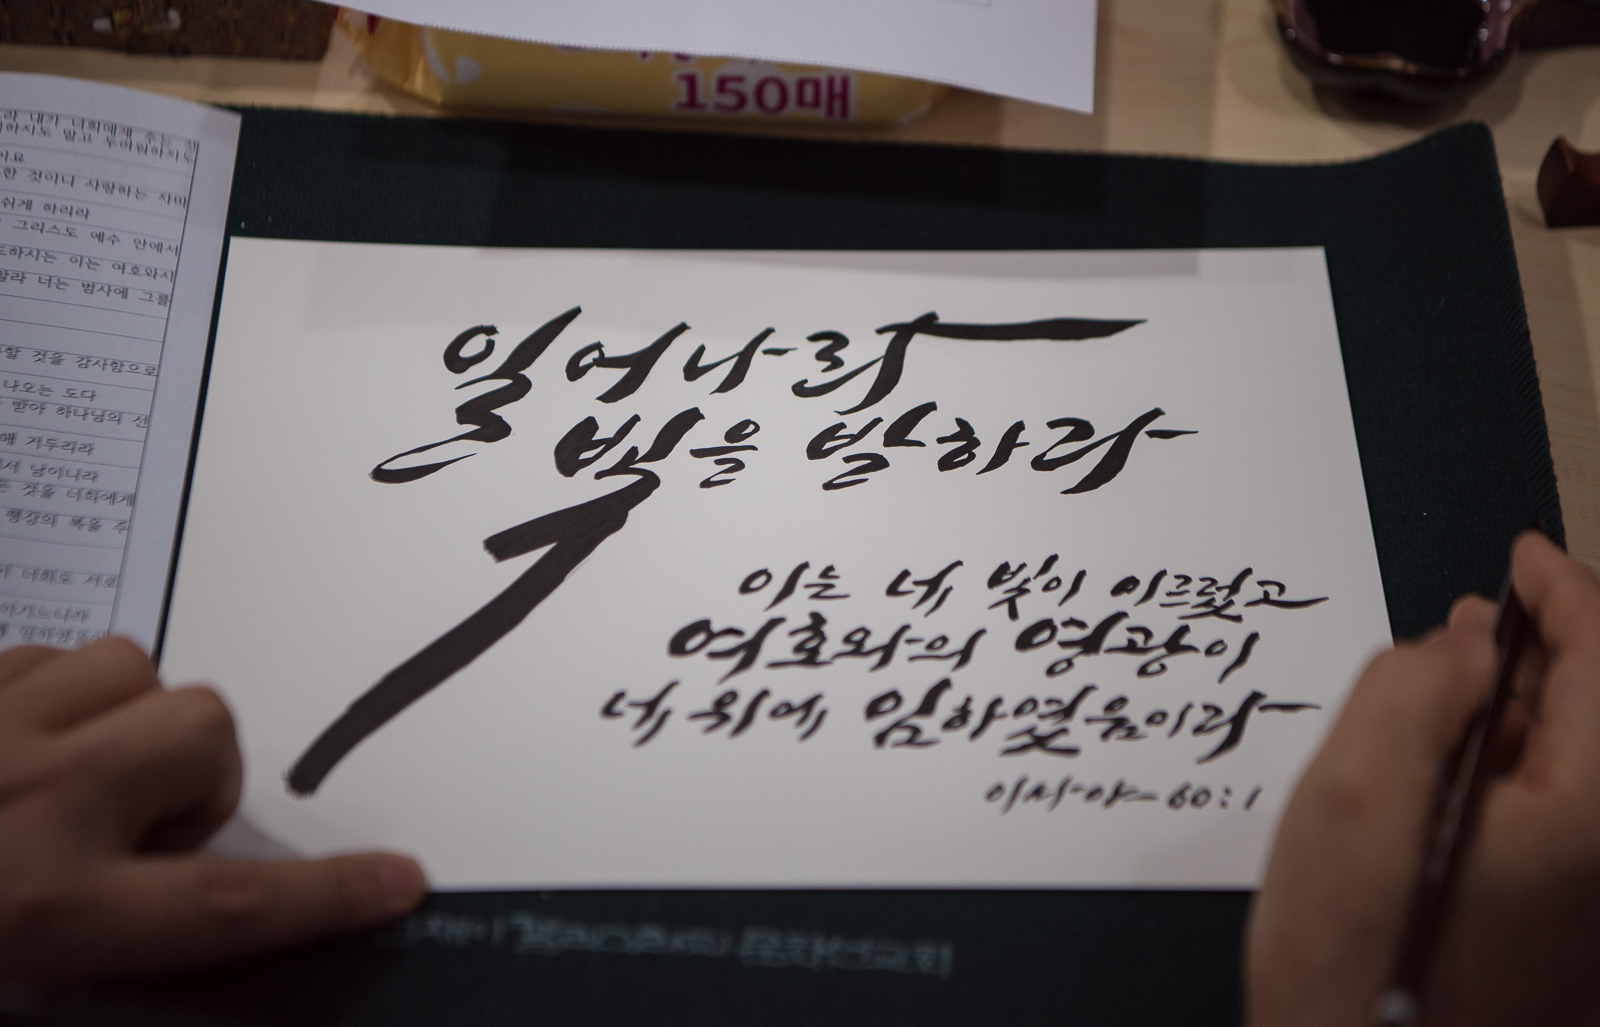 150매
내가 너희에게 주는
말고 두려워하지도
것이니 사랑하는 자마
쉬게 하리라
그리스도 예수 안에서
이는 여호와시
너는 범사에 그를
것을 감사함으로
나오는 도다
받아 하나님의 선
거두리라
것을 너희에게
너희도 서로
일어나라
빛을 발하라
이는 네 빛이 이르렀고
여호와의 영광이
네 위에 임하였음이라
이사야 60:1